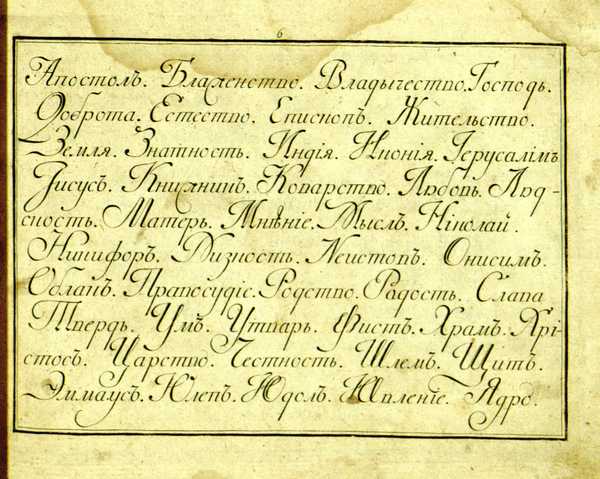 6
Апостолъ. Блаженство. Владычество. Господь.
Доброта. Естество. Епископъ. Жительство.
Земля. Знатность. Индія. Іерусалімъ
Іисусъ. Книжникъ. Коварство. Любовь. Люд-
сность. Матерь. Мнѣніе. Мыслъ. Ніколай.
Никифоръ. Низность. Неистовъ. Онисимъ.
Облакъ. Правосудіе. Родство. Радость. Слава
Твердь. Умъ. Утварь. Фистъ. Храмъ. Хрі-
стосъ. Царство. Честность. Шлемъ. Щитъ.
Эммаусъ. Юдолъ. Явленіе. Ядро.